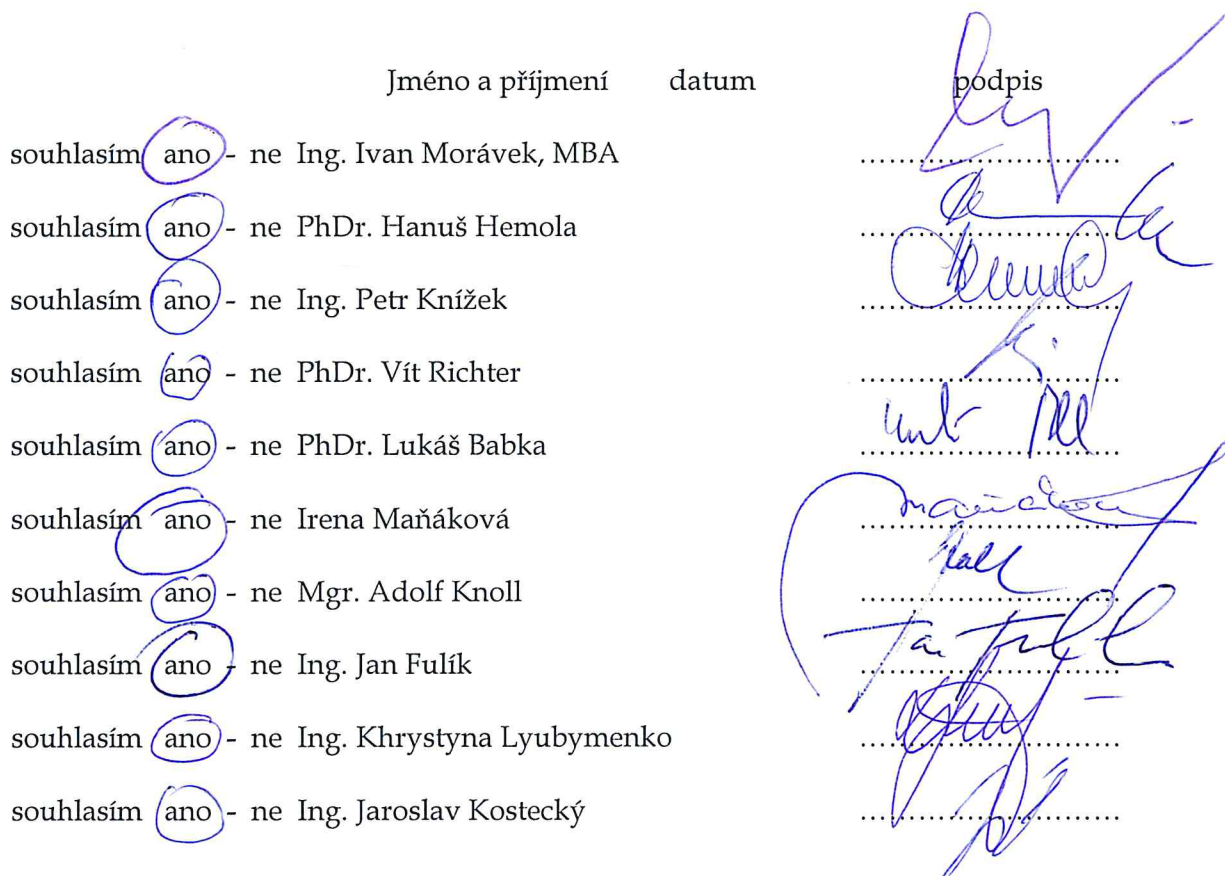 Jméno a příjmení datum podpis
souhlasím ano - ne Ing. Ivan Morávek, MBA ..............................
souhlasím ano - ne PhDr. Hanuš Hemola ..............................
souhlasím ano - ne Ing. Petr Knížek ..............................
souhlasím ano - ne PhDr. Vít Richter ..............................
souhlasím ano - ne PhDr. Lukáš Babka ..............................
souhlasím ano - ne Irena Maňáková ..............................
souhlasím ano - ne Mgr. Adolf Knoll ..............................
souhlasím ano - ne Ing. Jan Fulík ..............................
souhlasím ano - ne Ing. Khrystyna Lyubymenko ..............................
souhlasím ano - ne Ing. Jaroslav Kostecký ..............................